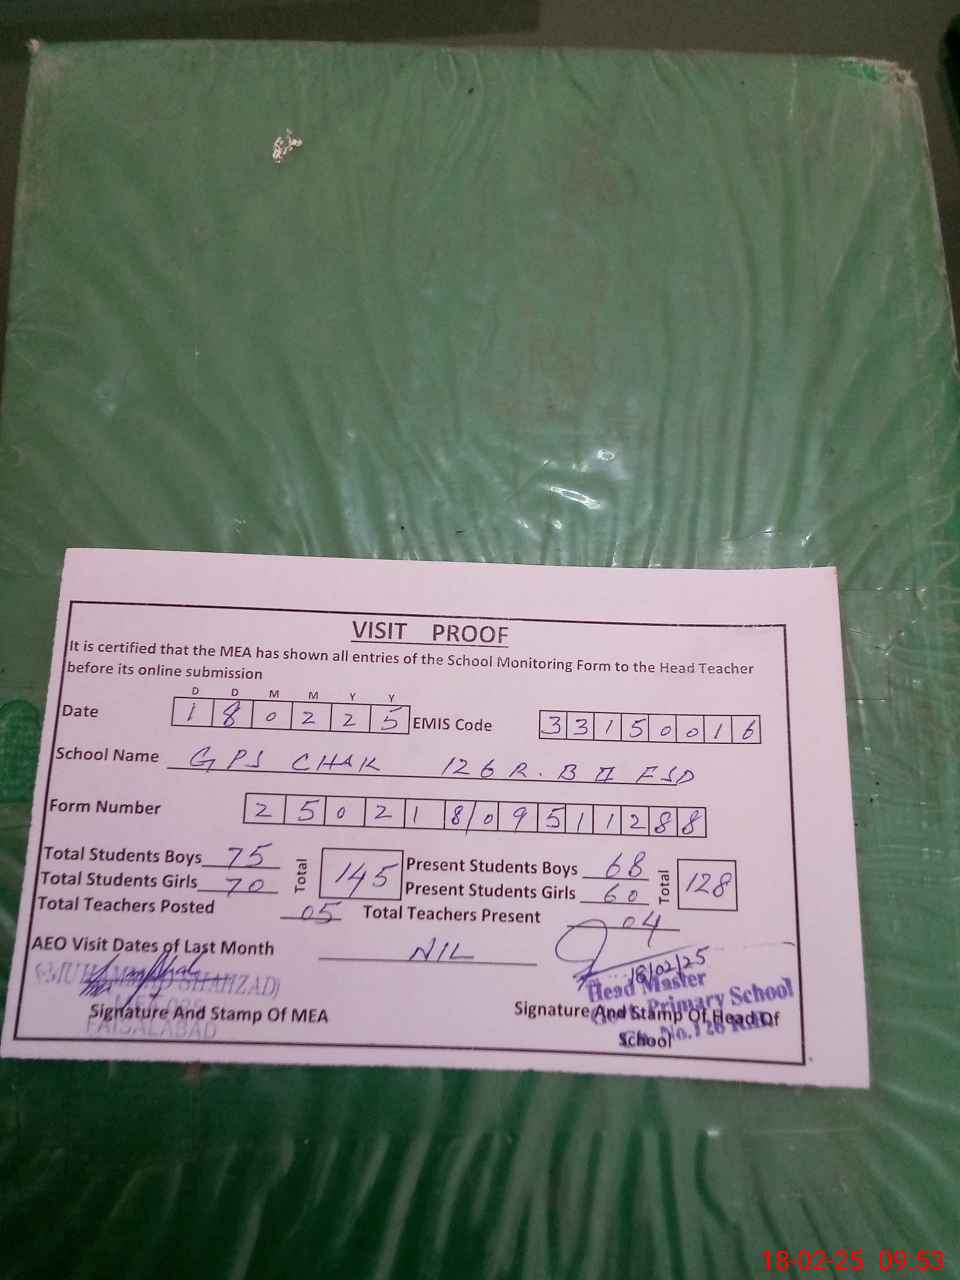 VISIT PROOF
It is certified that the MEA has shown all entries of the School Monitoring Form to the Head Teacher
before its online submission
D D M M Y Y
Date 1 8 0 2 2 5 EMIS Code 3 3 1 5 0 0 1 6
School Name GPS CHAK 126 R.B II FSD
Form Number 2 5 0 2 1 8 0 9 5 1 1 2 8 8
Total Students Boys 75 Total 145 Present Students Boys 68 Total 128
Total Students Girls 70 Present Students Girls 60
Total Teachers Posted 05 Total Teachers Present 04
AEO Visit Dates of Last Month NIL
18/02/25
(MUHAMMAD SHAHZAD)
Head Master
Primary School
Signature And Stamp Of MEA Signature And Stamp Of Head Of
School
FAISALABAD
No.126
18-02-25 09.53